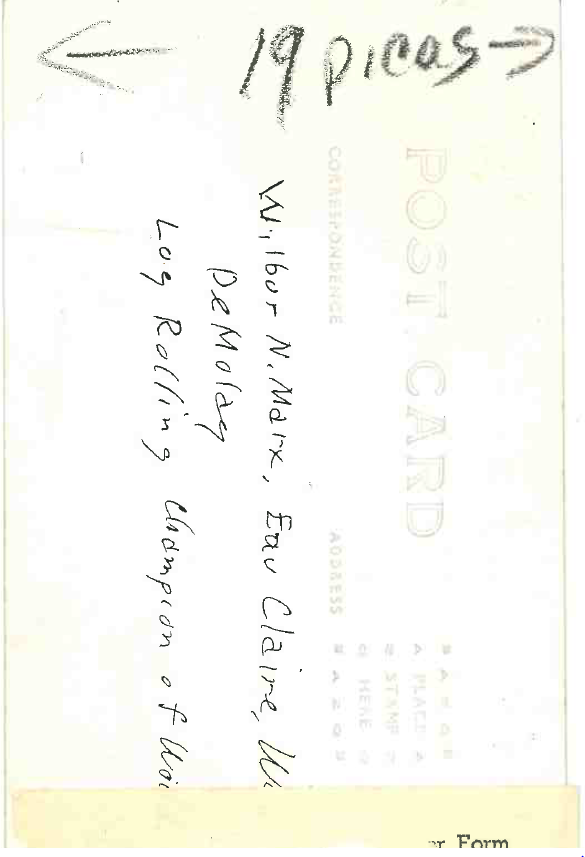 19 picas
POST CARD
CORRESPONDENCE
ADDRESS
PLACE
STAMP
HERE
Wilbur N. Marx, Eau Claire, W
DeMolay
Log Rolling Champion of
Form